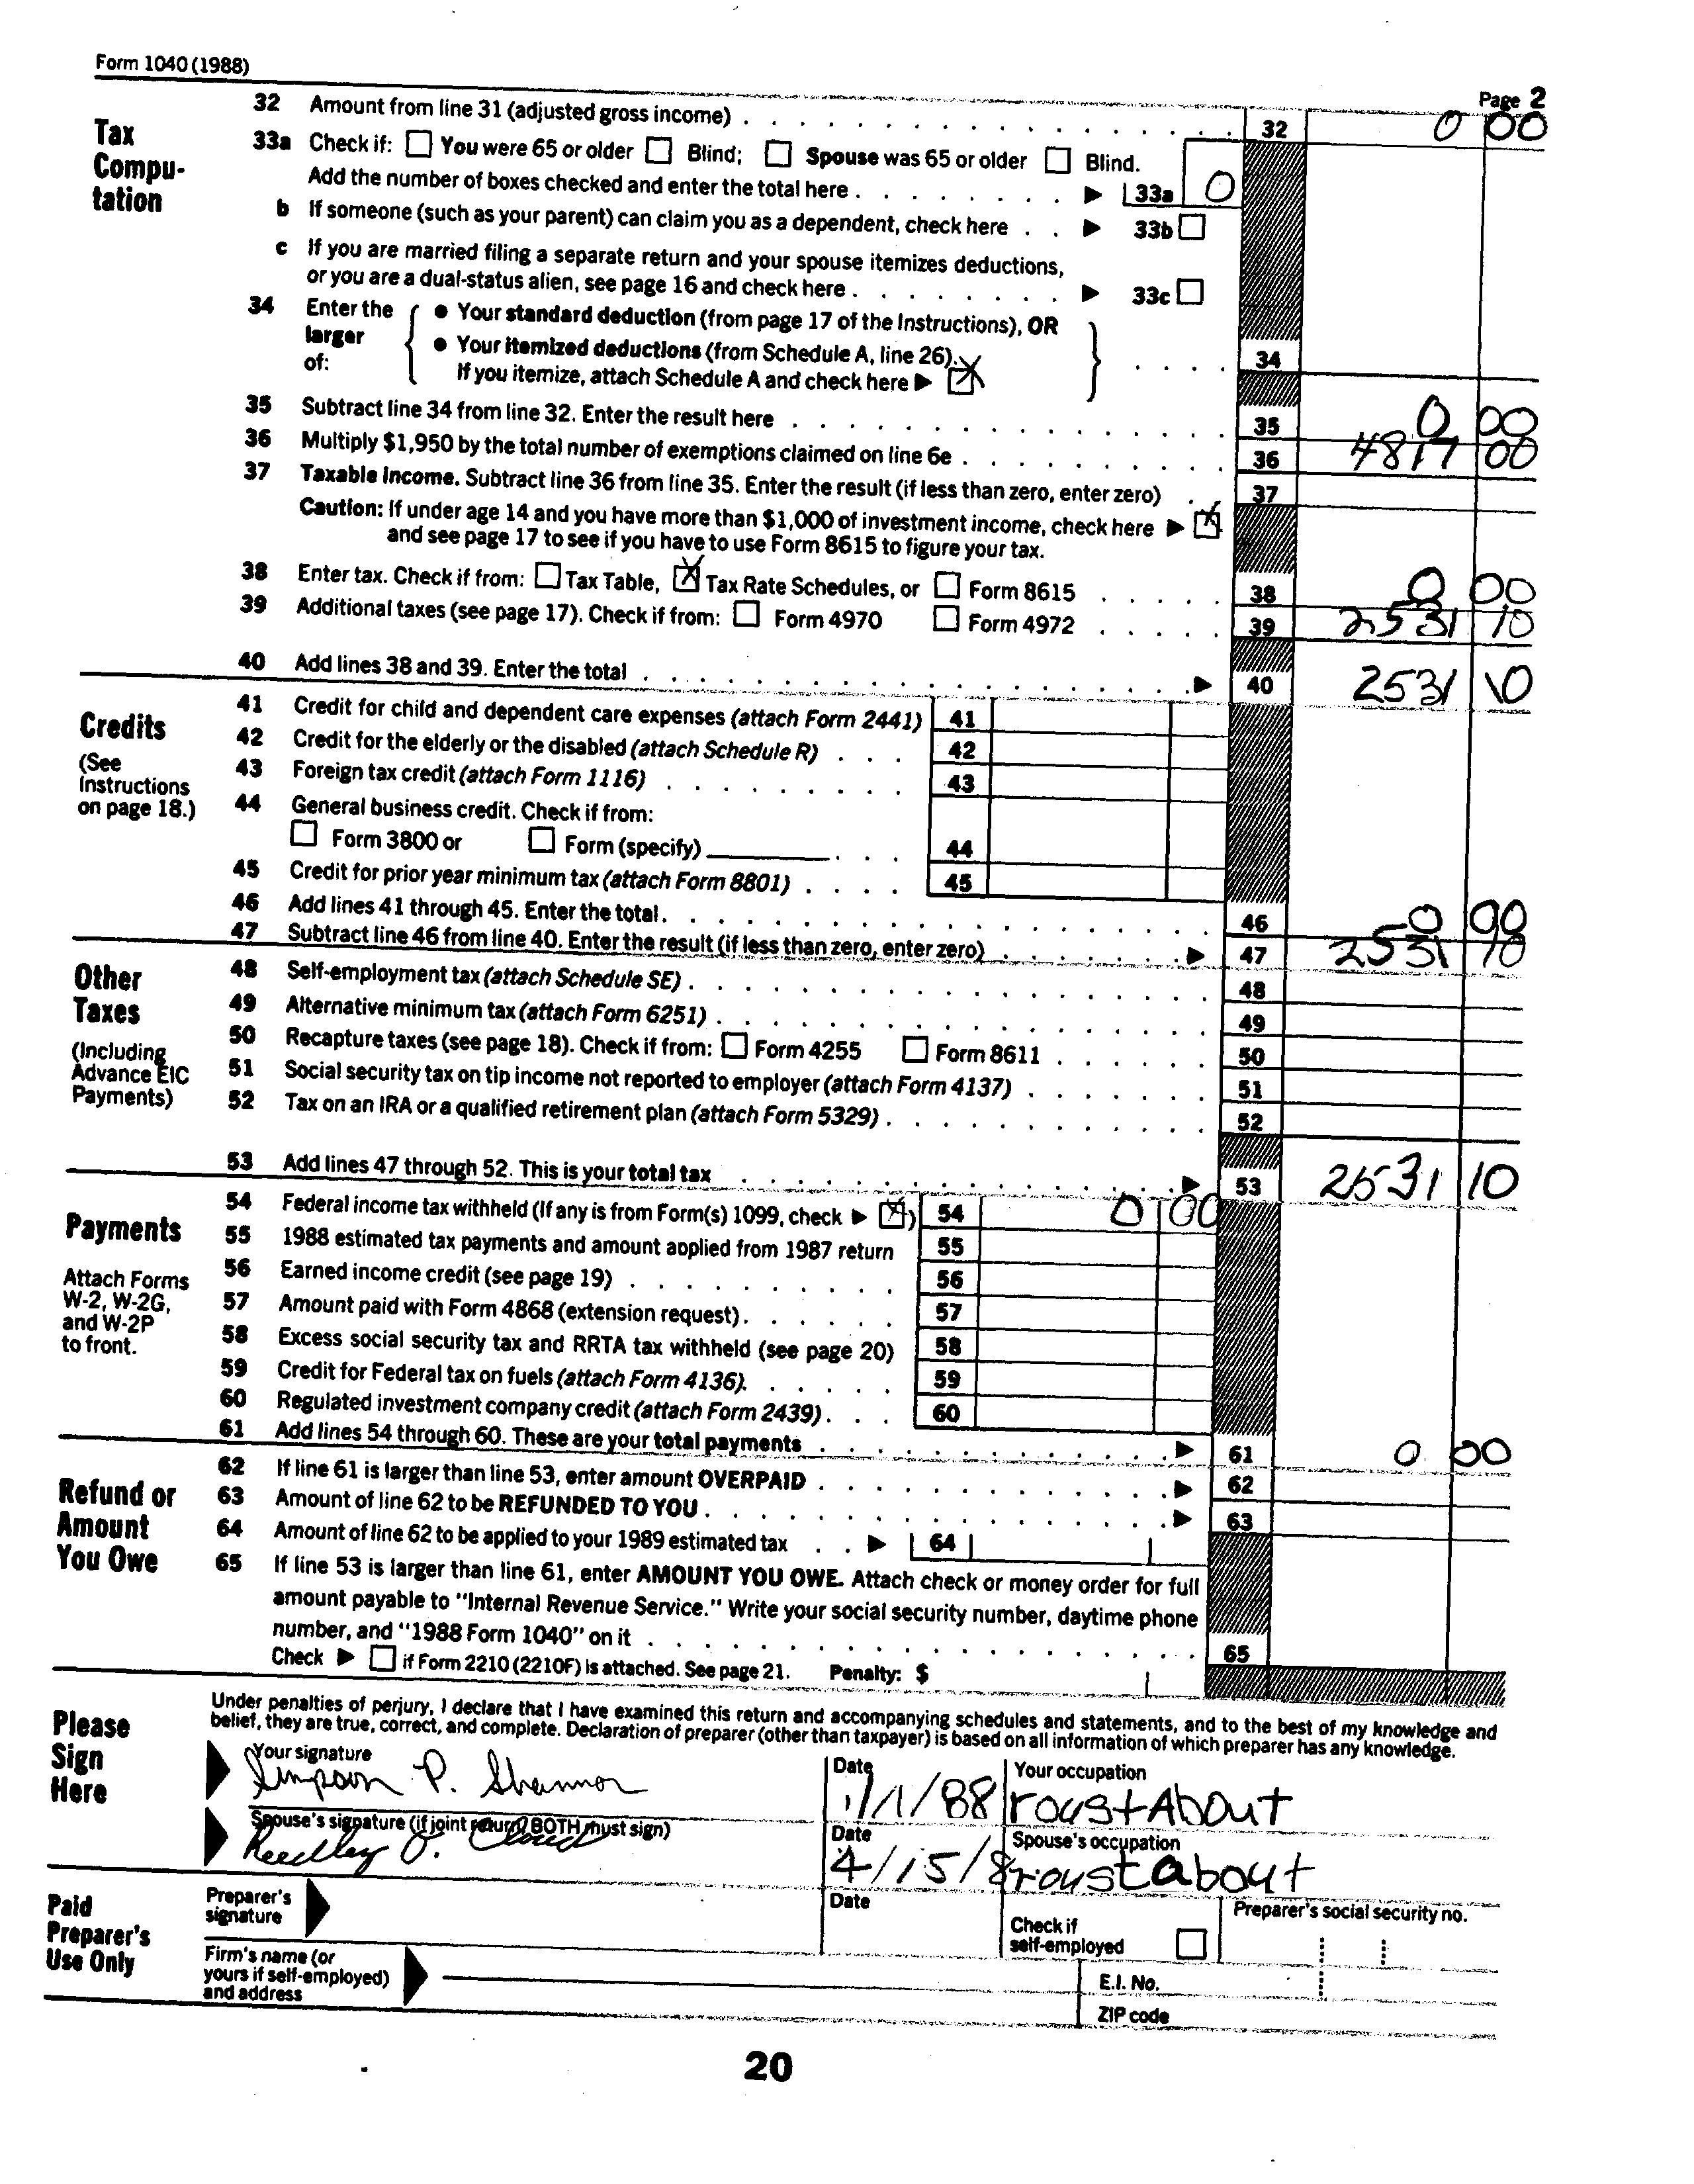 Form 1040 (1988)
Page 2
Tax Compu-tation
32 Amount from line 31 (adjusted gross income) 32 0 00
33a Check if: You were 65 or older Blind; Spouse was 65 or older Blind.
Add the number of boxes checked and enter the total here 33a 0
b If someone (such as your parent) can claim you as a dependent, check here 33b
c If you are married filing a separate return and your spouse itemizes deductions,
or you are a dual-status alien, see page 16 and check here 33c
34 Enter the larger of:
• Your standard deduction (from page 17 of the Instructions), OR
• Your itemized deductions (from Schedule A, line 26).
If you itemize, attach Schedule A and check here ▶ X 34
35 Subtract line 34 from line 32. Enter the result here 35 0 00
36 Multiply $1,950 by the total number of exemptions claimed on line 6e 36 4817 00
37 Taxable income. Subtract line 36 from line 35. Enter the result (if less than zero, enter zero) 37
Caution: If under age 14 and you have more than $1,000 of investment income, check here ▶ X
and see page 17 to see if you have to use Form 8615 to figure your tax.
38 Enter tax. Check if from: Tax Table, X Tax Rate Schedules, or Form 8615 38 0 00
39 Additional taxes (see page 17). Check if from: Form 4970 Form 4972 39 2531 10
40 Add lines 38 and 39. Enter the total ▶ 40 2531 10
Credits
(See Instructions on page 18.)
41 Credit for child and dependent care expenses (attach Form 2441) 41
42 Credit for the elderly or the disabled (attach Schedule R) 42
43 Foreign tax credit (attach Form 1116) 43
44 General business credit. Check if from:
Form 3800 or Form (specify) 44
45 Credit for prior year minimum tax (attach Form 8801) 45
46 Add lines 41 through 45. Enter the total 46 0 00
47 Subtract line 46 from line 40. Enter the result (if less than zero, enter zero) ▶ 47 2531 10
Other Taxes
(Including Advance EIC Payments)
48 Self-employment tax (attach Schedule SE) 48
49 Alternative minimum tax (attach Form 6251) 49
50 Recapture taxes (see page 18). Check if from: Form 4255 Form 8611 50
51 Social security tax on tip income not reported to employer (attach Form 4137) 51
52 Tax on an IRA or a qualified retirement plan (attach Form 5329) 52
53 Add lines 47 through 52. This is your total tax ▶ 53 2531 10
Payments
Attach Forms W-2, W-2G, and W-2P to front.
54 Federal income tax withheld (If any is from Form(s) 1099, check ▶ X) 54 0 00
55 1988 estimated tax payments and amount applied from 1987 return 55
56 Earned income credit (see page 19) 56
57 Amount paid with Form 4868 (extension request) 57
58 Excess social security tax and RRTA tax withheld (see page 20) 58
59 Credit for Federal tax on fuels (attach Form 4136) 59
60 Regulated investment company credit (attach Form 2439) 60
61 Add lines 54 through 60. These are your total payments ▶ 61 0 00
Refund or Amount You Owe
62 If line 61 is larger than line 53, enter amount OVERPAID ▶ 62
63 Amount of line 62 to be REFUNDED TO YOU ▶ 63
64 Amount of line 62 to be applied to your 1989 estimated tax ▶ 64
65 If line 53 is larger than line 61, enter AMOUNT YOU OWE. Attach check or money order for full
amount payable to "Internal Revenue Service." Write your social security number, daytime phone
number, and "1988 Form 1040" on it 65
Check ▶ if Form 2210 (2210F) is attached. See page 21. Penalty: $
Please Sign Here
Under penalties of perjury, I declare that I have examined this return and accompanying schedules and statements, and to the best of my knowledge and
belief, they are true, correct, and complete. Declaration of preparer (other than taxpayer) is based on all information of which preparer has any knowledge.
Your signature Simpson P. Shannor Date 1/1/88 Your occupation roustAbout
Spouse's signature (if joint return, BOTH must sign) Reedley O. Cloud Date 4/15/8 Spouse's occupation roustabout
Paid Preparer's Use Only
Preparer's signature Date Check if self-employed Preparer's social security no.
Firm's name (or yours if self-employed) and address E.I. No.
ZIP code
20